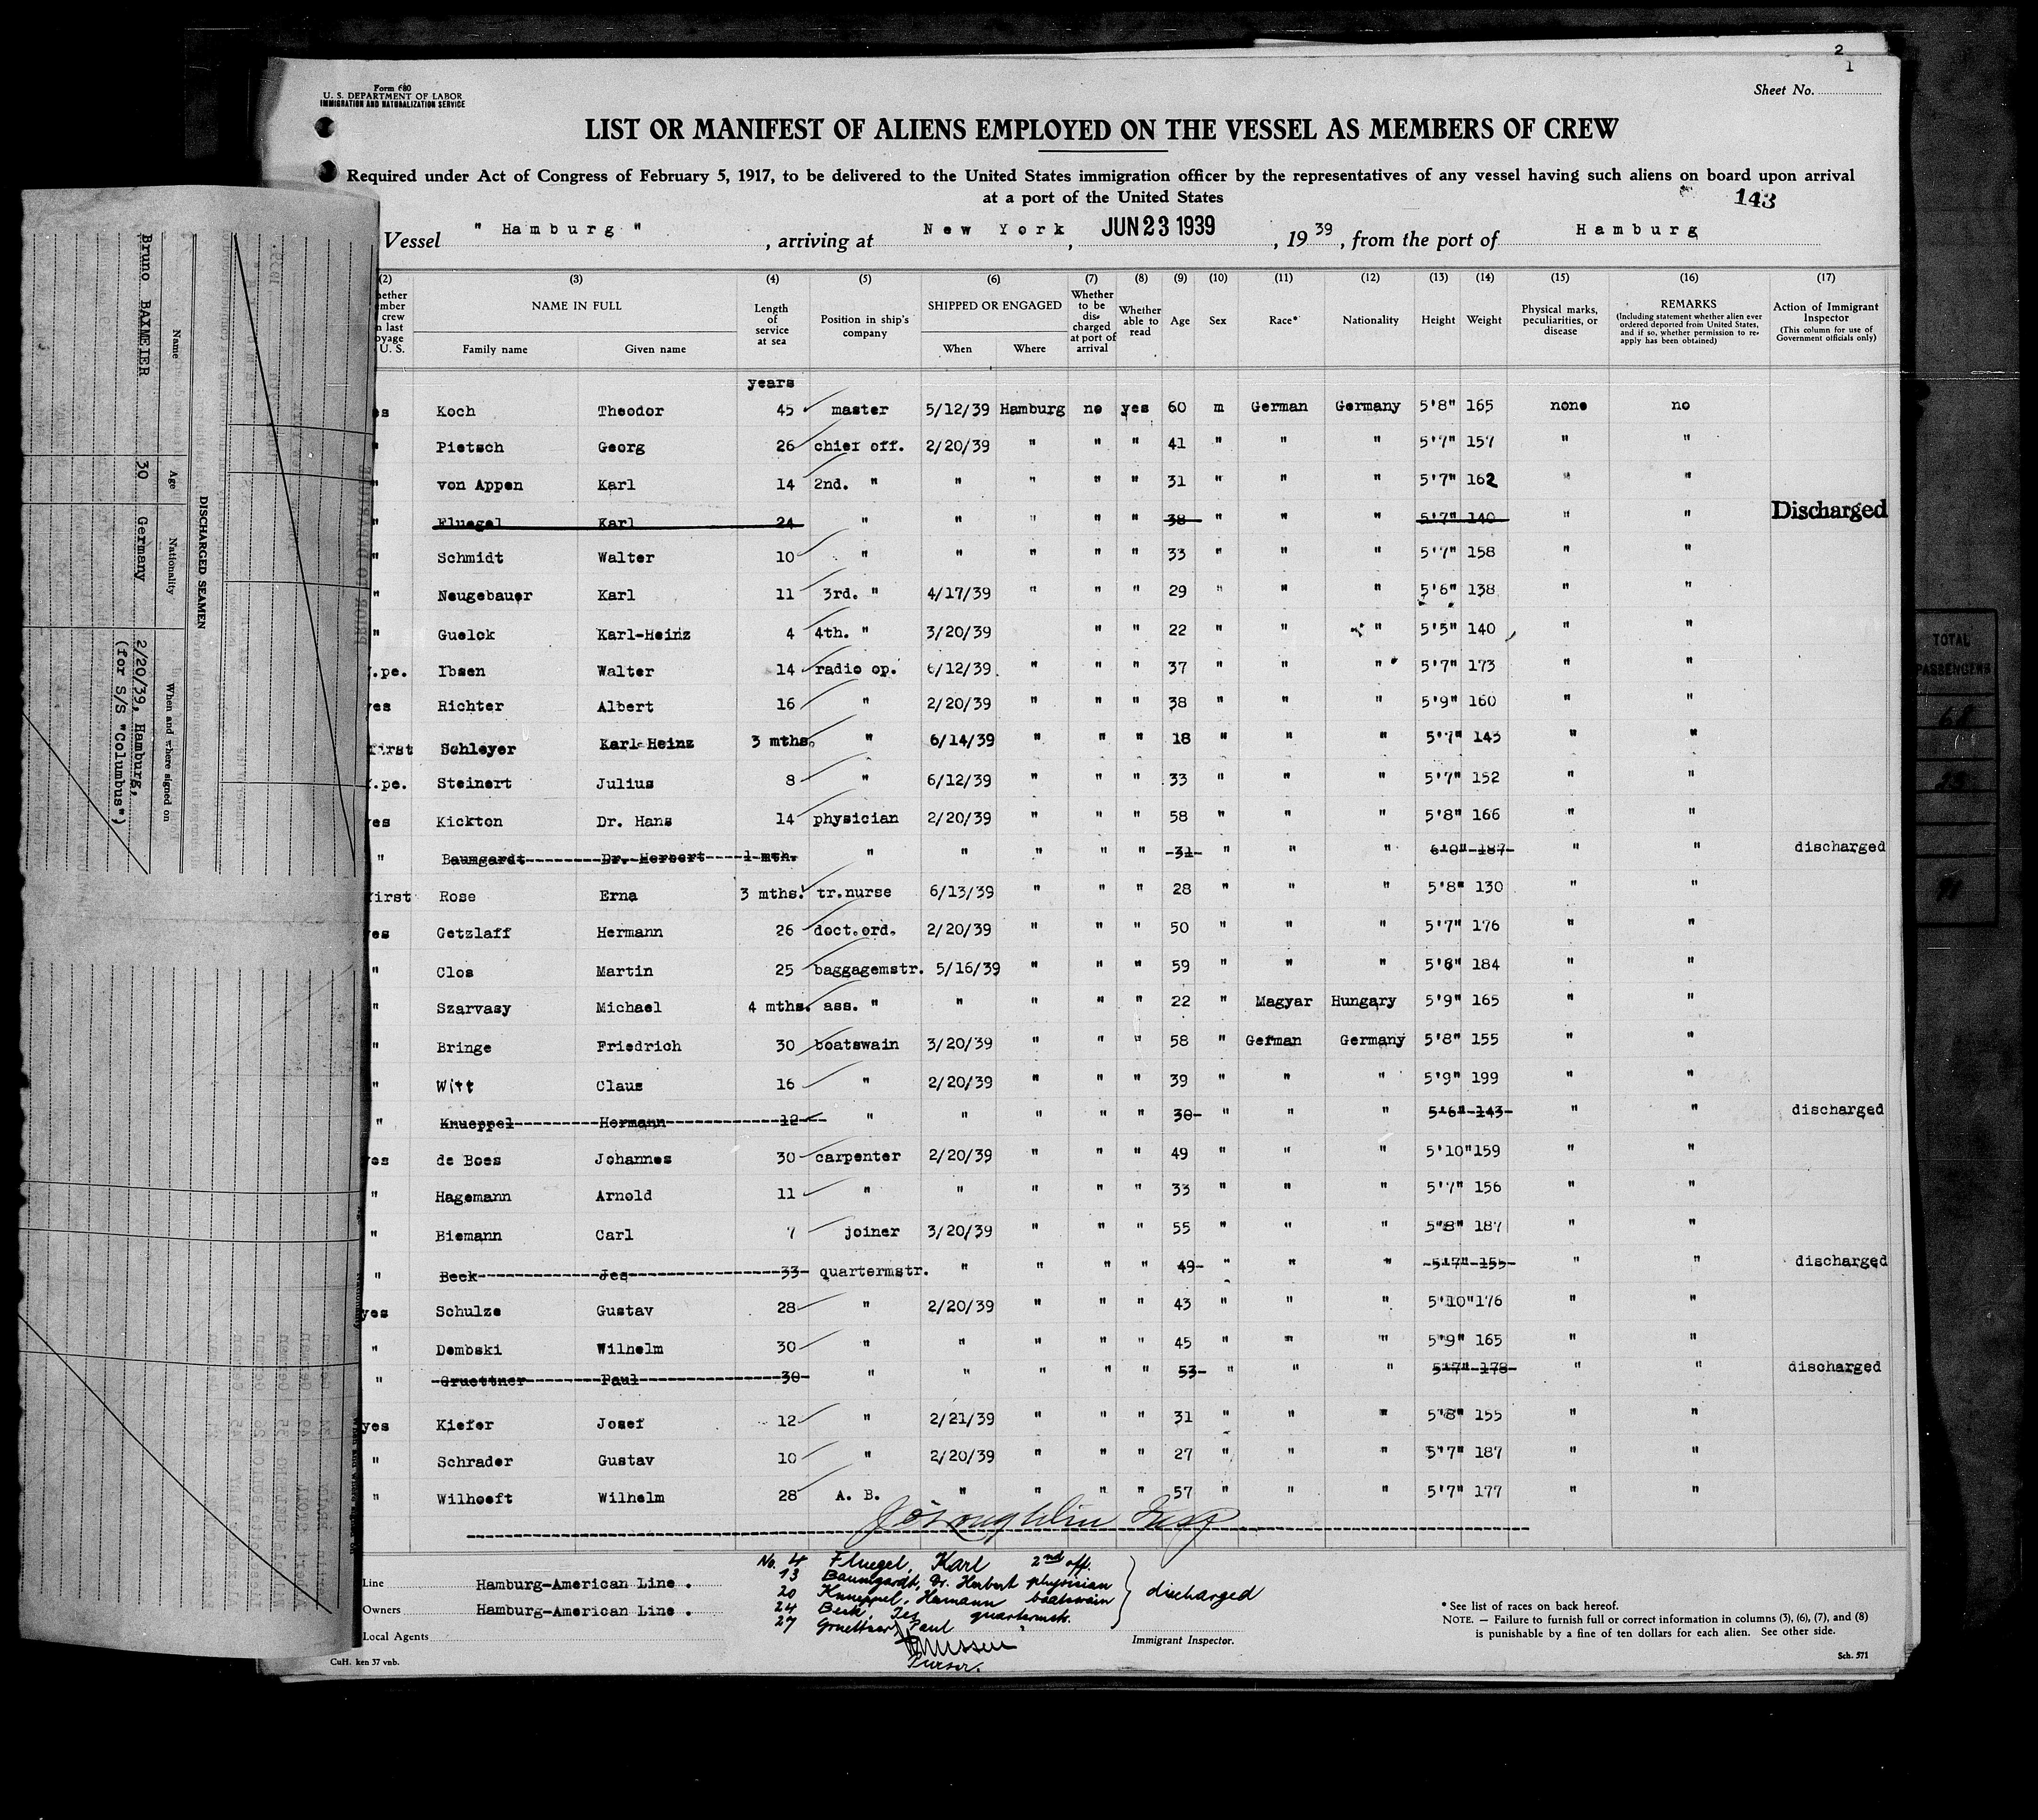 2
1
Form 680
U. S. DEPARTMENT OF LABOR
IMMIGRATION AND NATURALIZATION SERVICE
Sheet No.
LIST OR MANIFEST OF ALIENS EMPLOYED ON THE VESSEL AS MEMBERS OF CREW
Required under Act of Congress of February 5, 1917, to be delivered to the United States immigration officer by the representatives of any vessel having such aliens on board upon arrival
at a port of the United States
143
Vessel " Hamburg " , arriving at New York , JUN 23 1939 , 19 39 , from the port of Hamburg
(2) (3) (4) (5) (6) (7) (8) (9) (10) (11) (12) (13) (14) (15) (16) (17)
NAME IN FULL
Family name Given name
Length of service at sea
Position in ship's company
SHIPPED OR ENGAGED
When Where
Whether to be discharged at port of arrival
Whether able to read
Age Sex Race* Nationality Height Weight
Physical marks, peculiarities, or disease
REMARKS
(Including statement whether alien ever ordered deported from United States, and if so, whether permission to reapply has been obtained)
Action of Immigrant Inspector
(This column for use of Government officials only)
years
es Koch Theodor 45 master 5/12/39 Hamburg no yes 60 m German Germany 5'8" 165 none no
" Pietsch Georg 26 chief off. 2/20/39 " " " 41 " " " 5'7" 157 " "
" von Appen Karl 14 2nd. " " " " " 31 " " " 5'7" 162 " "
" Fluegel Karl 24 " " " " " 38 " " " 5'7" 140 " " Discharged
" Schmidt Walter 10 " " " " " 33 " " " 5'7" 158 " "
" Neugebauer Karl 11 3rd. " 4/17/39 " " " 29 " " " 5'6" 138 " "
" Guelck Karl-Heinz 4 4th. " 3/20/39 " " 22 " " " 5'5" 140 " "
.pe. Ibsen Walter 14 radio op. 6/12/39. " " " 37 " " " 5'7" 173 " "
yes Richter Albert 16 " 2/20/39 " " " 38 " " " 5'9" 160 " "
first Schleyer Karl-Heinz 3 mths. " 6/14/39 " " " 18 " " " 5'7" 145 " "
.pe. Steinert Julius 8 " 6/12/39 " " " 33 " " " 5'7" 152 " "
yes Kickton Dr. Hans 14 physician 2/20/39 " " " 58 " " " 5'8" 166 " "
" Baumgardt Dr. Herbert 1 mth. " " " " " 31 " " " 6'0" 187 " " discharged
first Rose Erna 3 mths. tr.nurse 6/13/39 " " " 28 " " " 5'8" 130 " "
yes Getzlaff Hermann 26 doct.ord. 2/20/39 " " " 50 " " " 5'7" 176 " "
" Clos Martin 25 baggagemstr. 5/16/39 " " " 59 " " " 5'6" 184 " "
" Szarvasy Michael 4 mths. ass. " " " " " 22 " Magyar Hungary 5'9" 165 " "
" Bringe Friedrich 30 boatswain 3/20/39 " " " 58 " German Germany 5'8" 155 " "
" Witt Claus 16 " 2/20/39 " " " 39 " " " 5'9" 199 " "
" Knueppel Hermann 12 " " " " " 30 " " " 5'6" 143 " " discharged
yes de Boes Johannes 30 carpenter 2/20/39 " " " 49 " " " 5'10" 159 " "
" Hagemann Arnold 11 " " " " " 33 " " " 5'7" 156 " "
" Biemann Carl 7 joiner 3/20/39 " " " 55 " " " 5'8" 187 " "
" Beck Jes 33 quartermstr. " " " " 49 " " " 5'7" 155 " " discharged
yes Schulze Gustav 28 " 2/20/39 " " " 43 " " " 5'10" 176 " "
" Dembski Wilhelm 30 " " " " " 45 " " " 5'9" 165 " "
" Gruettner Paul 30 " " " " " 53 " " " 5'7" 178 " " discharged
yes Kiefer Josef 12 " 2/21/39 " " " 31 " " " 5'8" 155 " "
" Schrader Gustav 10 " 2/20/39 " " " 27 " " " 5'7" 187 " "
" Wilhoeft Wilhelm 28 A. B. " " " " 57 " " " 5'7" 177 " "
Line Hamburg-American Line .
Owners Hamburg-American Line .
Local Agents
CuH. ken 37 vnb.
No. 4 Fluegel, Karl 2nd off.
13 Baumgardt, Dr. Herbert physician
20 Knueppel, Hermann boatswain
24 Beck, Jes quartermstr.
27 Gruettner, Paul "
discharged
Purser.
Immigrant Inspector.
* See list of races on back hereof.
NOTE. — Failure to furnish full or correct information in columns (3), (6), (7), and (8)
is punishable by a fine of ten dollars for each alien. See other side.
Sch. 571
DISCHARGED SEAMEN
Name Age Nationality When and where signed on
Bruno BAXMEIER 30 Germany 2/20/39, Hamburg,
(for S/S "Columbus")
TOTAL
PASSENGERS